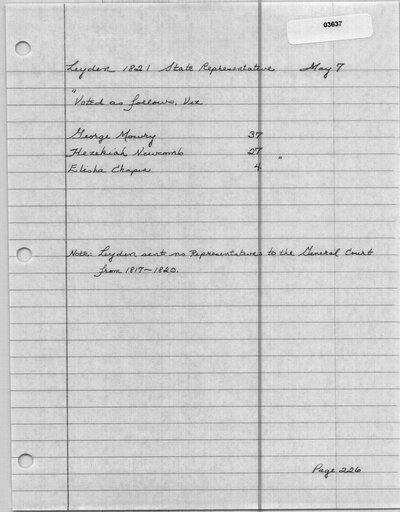 03637
Leyden 1821 State Representative May 7
"Voted as follows, Viz
George Mowry 37
Hezekiah Newcomb 27
Elisha Chapin 4 "
Note: Leyden sent no Representatives to the General Court
from 1817-1820.
Page 226